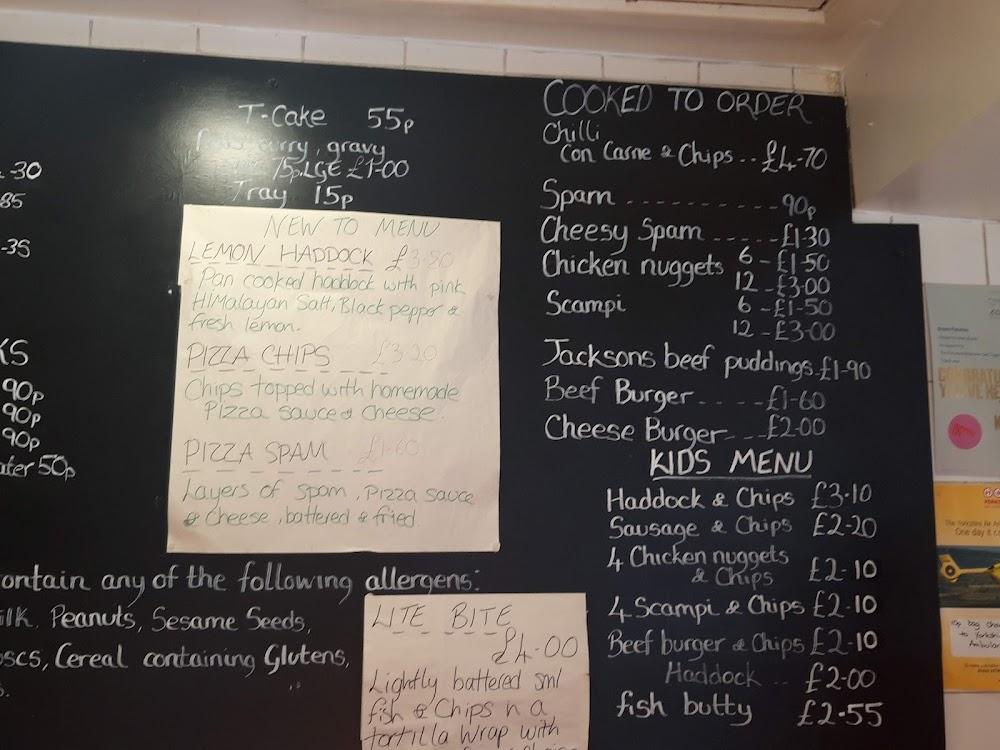 T-Cake 55p
curry, gravy
75p. LGE £1-00
Tray 15p
-30
85
-35
KS
90p
90p
90p
ater 50p
NEW TO MENU
LEMON HADDOCK £3-50
Pan cooked haddock with pink
HIMalayan Salt, Black pepper &
fresh lemon.
PIZZA CHIPS £3-20
Chips topped with homemade
Pizza sauce & cheese.
PIZZA SPAM £1-60
Layers of spam, Pizza sauce
& cheese, battered & fried.
ontain any of the following allergens:
ilk, Peanuts, Sesame Seeds,
oscs, Cereal containing Glutens,
s.
LITE BITE
£4-00
Lightly battered sml
fish & Chips n a
tortilla wrap with
COOKED TO ORDER
Chilli
Con Carne & Chips .. £4-70
Spam - - - - - - - - - 90p
Cheesy Spam ..... £1-30
Chicken nuggets 6 - £1-50
12 - £3-00
Scampi 6 - £1-50
12 - £3-00
Jacksons beef puddings. £1-90
Beef Burger - - - - - £1-60
Cheese Burger - - - £2-00
KIDS MENU
Haddock & Chips £3-10
Sausage & Chips £2-20
4 Chicken nuggets
& Chips £2-10
4 Scampi & Chips £2-10
Beef burger & Chips £2-10
Haddock .. £2-00
fish butty £2-55
The Yorkshire Air Am
One day it c